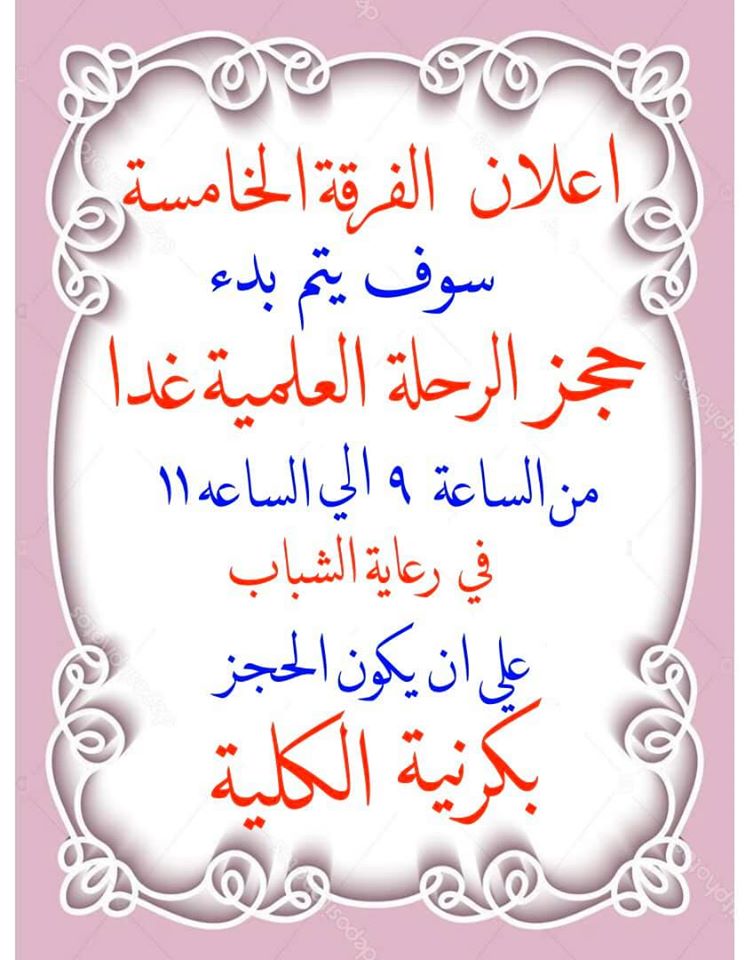 اعلان الفرقة الخامسة
سوف يتم بدء
حجز الرحلة العلمية غدا
من الساعة ٩ الي الساعه ١١
في رعاية الشباب
علي ان يكون الحجز
بكرنية الكلية